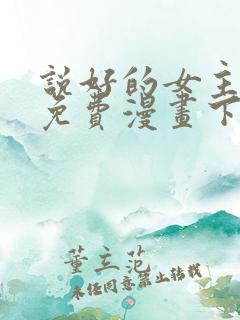 說好的女主
免費漫畫下
董立范
未经同意禁止转载